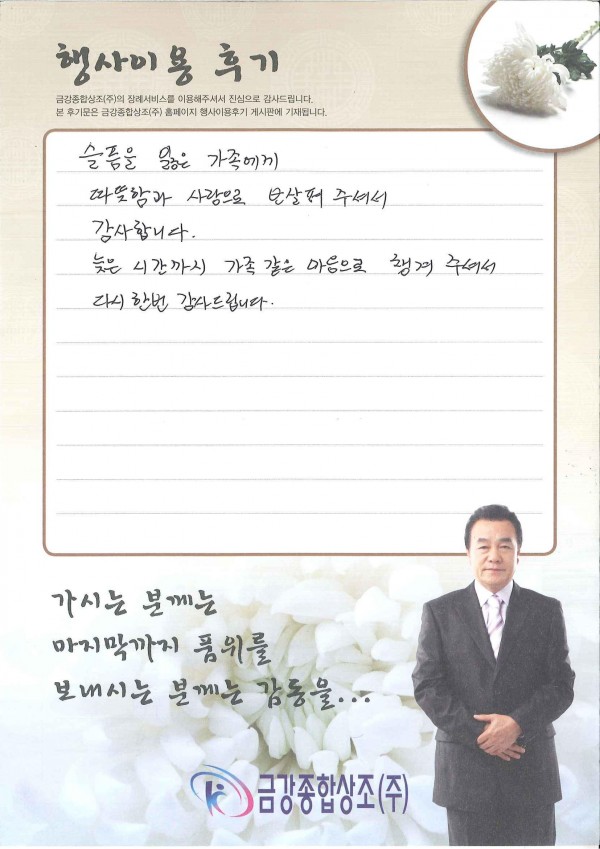 행사이용 후기
금강종합상조(주)의 장례서비스를 이용해주셔서 진심으로 감사드립니다.
본 후기문은 금강종합상조(주) 홈페이지 행사이용후기 게시판에 기재됩니다.
슬픔을 잃은 가족에게
따뜻함과 사랑으로 보살펴 주셔서
감사합니다.
늦은 시간까지 가족 같은 마음으로 챙겨 주셔서
다시 한번 감사드립니다.
가시는 분께는
마지막까지 품위를
보내시는 분께는 감동을...
금강종합상조(주)